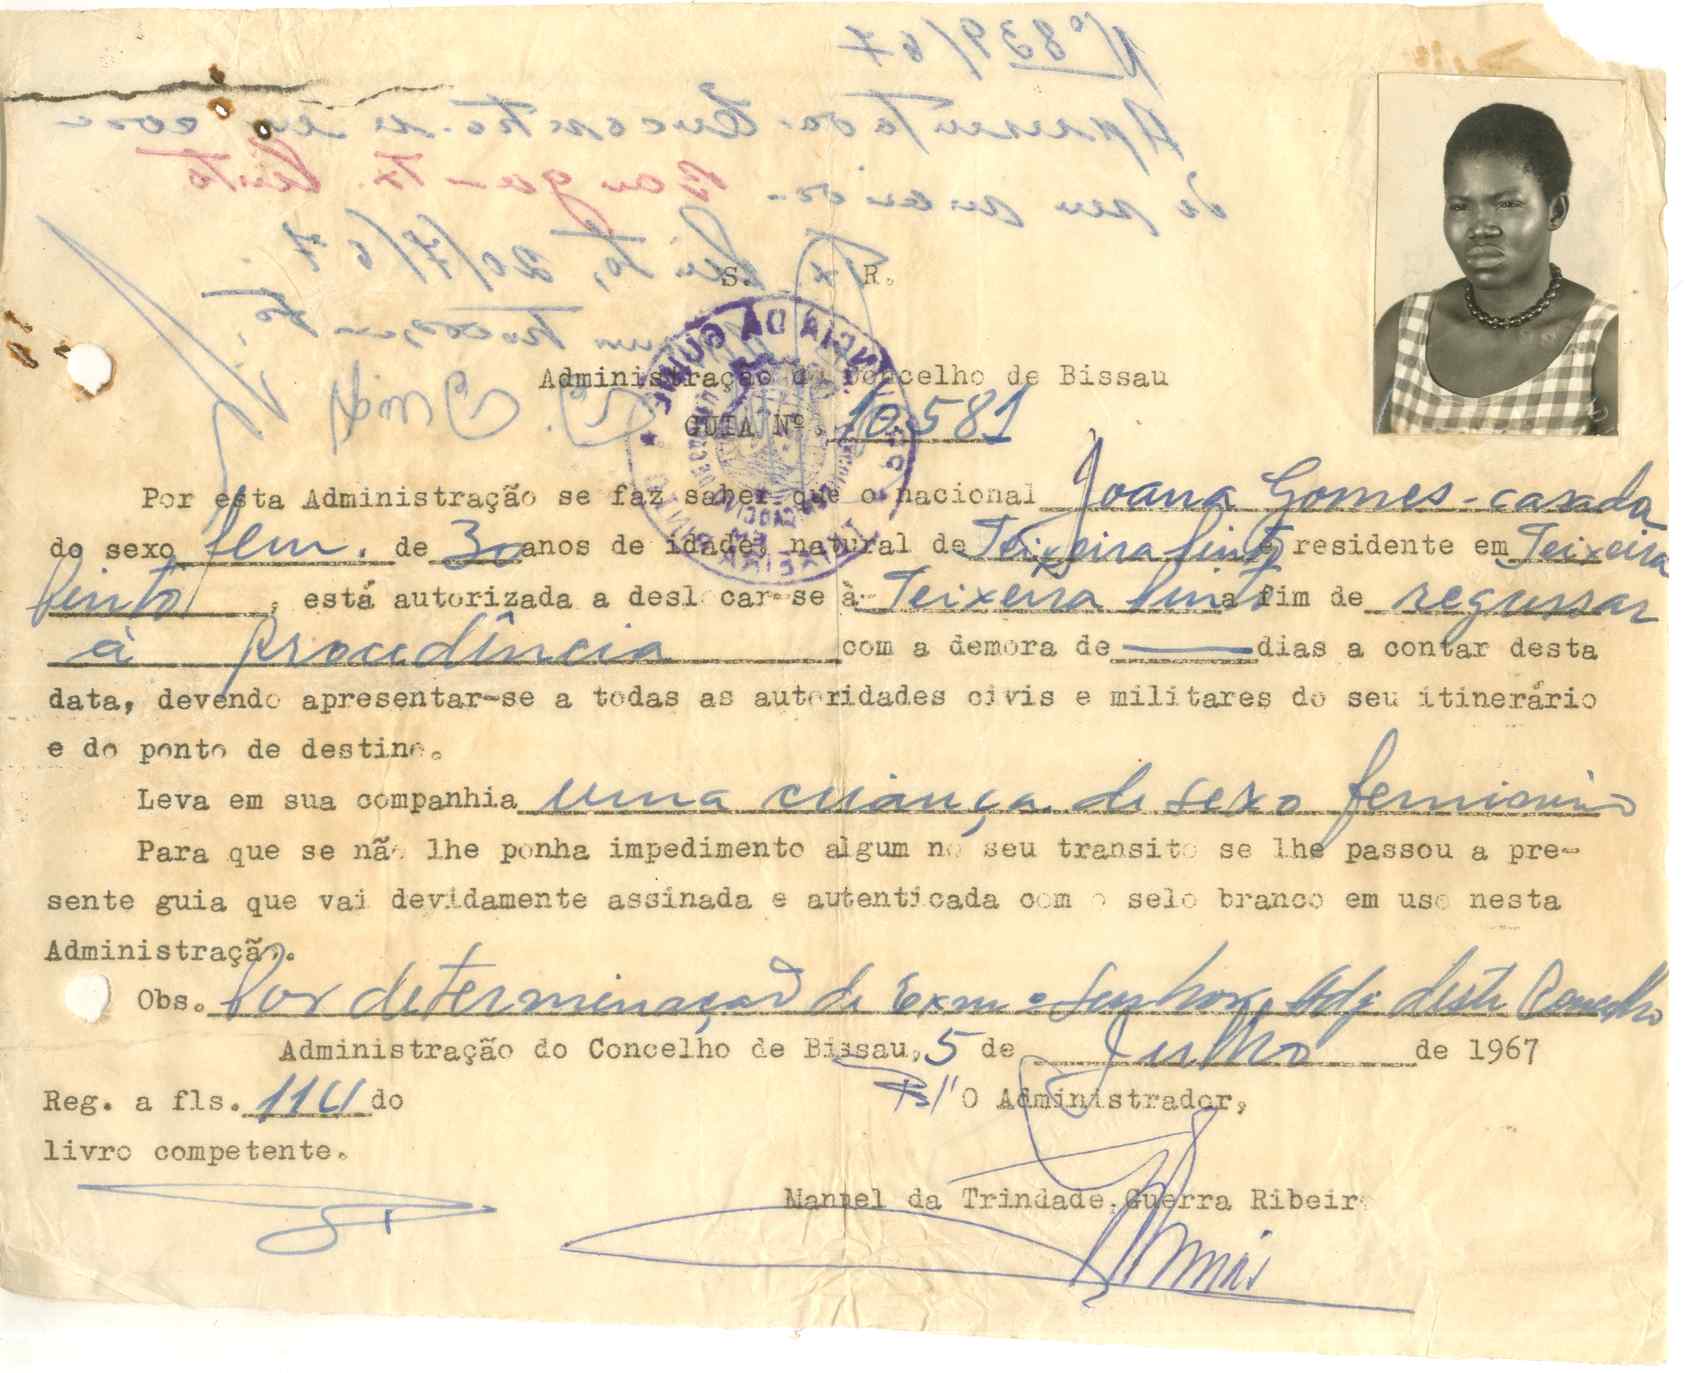 Nº 839/67
Apresentada. Encontra-se em casa
de seu
Tx Pinto, 20/7/67
S. R.
Administração do Concelho de Bissau
GUIA Nº. 10.581
Por esta Administração se faz saber que o nacional Joana Gomes - casada
do sexo fem. de 30 anos de idade, natural de Teixeira Pinto e residente em Teixeira
Pinto, está autorizada a deslocar-se à Teixeira Pinto a fim de regressar
à procedência com a demora de — dias a contar desta
data, devendo apresentar-se a todas as autoridades civis e militares do seu itinerário
e do ponto de destino.
Leva em sua companhia uma criança de sexo feminino
Para que se não lhe ponha impedimento algum no seu transito se lhe passou a pre-
sente guia que vai devidamente assinada e autenticada com o selo branco em uso nesta
Administração.
Obs. Por determinação de Exmº Senhor Adj. deste Concelho
Administração do Concelho de Bissau, 5 de Julho de 1967
Reg. a fls. 114 do
O Administrador,
livro competente.
Manuel da Trindade Guerra Ribeiro